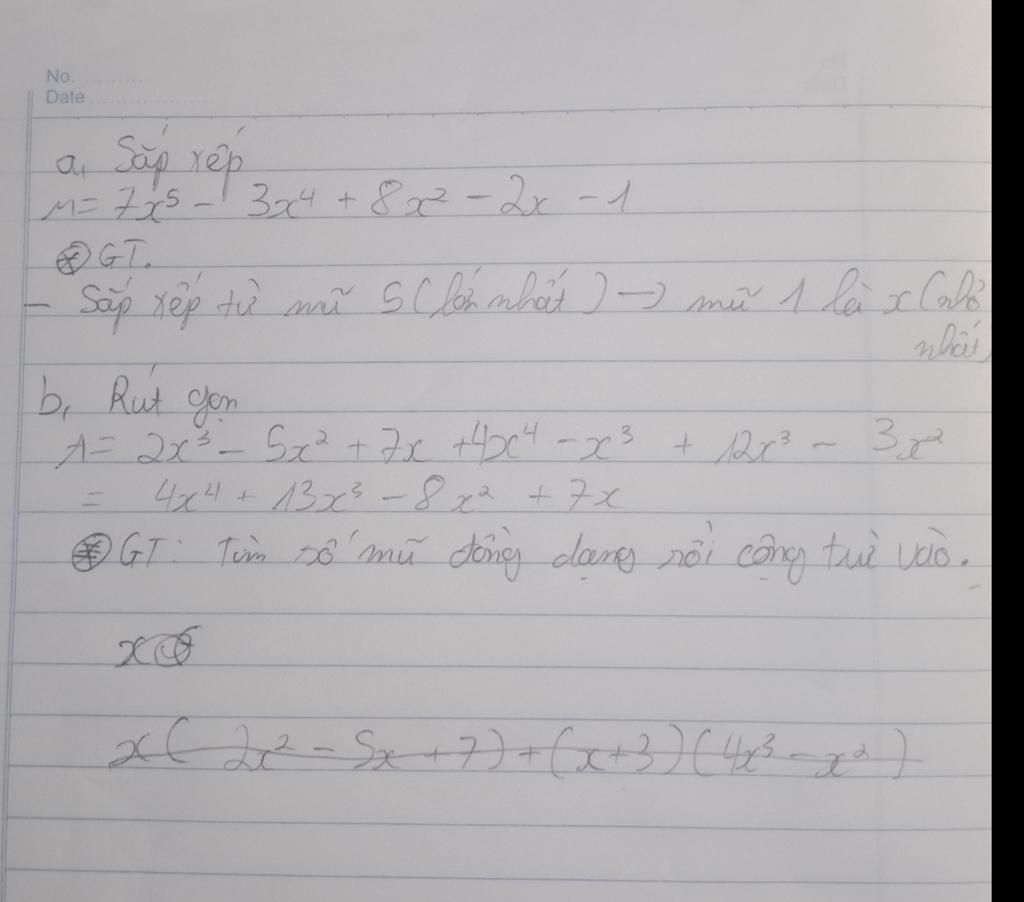 No. ..........
Date ....................
a, Sắp xếp
M= 7x⁵ - 3x⁴ + 8x² - 2x - 1
* GT.
- Sắp xếp từ mũ 5 (lớn nhất) → mũ 1 là x (nhỏ
nhất)
b, Rút gọn
A= 2x³ - 5x² + 7x +4x⁴ - x³ + 12x³ - 3x²
= 4x⁴ + 13x³ - 8x² + 7x
* GT: Tìm số mũ đồng dạng rồi cộng trừ vào.
x
x( 2x² - 5x + 7) + (x+3)(4x³ - x²)